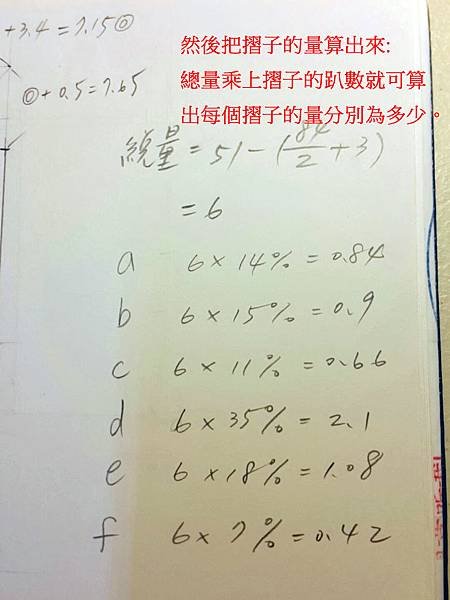 +3.4=7.15◎
◎+0.5=7.65
然後把摺子的量算出來:
總量乘上摺子的趴數就可算
出每個摺子的量分別為多少。
總量=51-(84/2+3)
=6
a 6×14%=0.84
b 6×15%=0.9
c 6×11%=0.66
d 6×35%=2.1
e 6×18%=1.08
f 6×7%=0.42